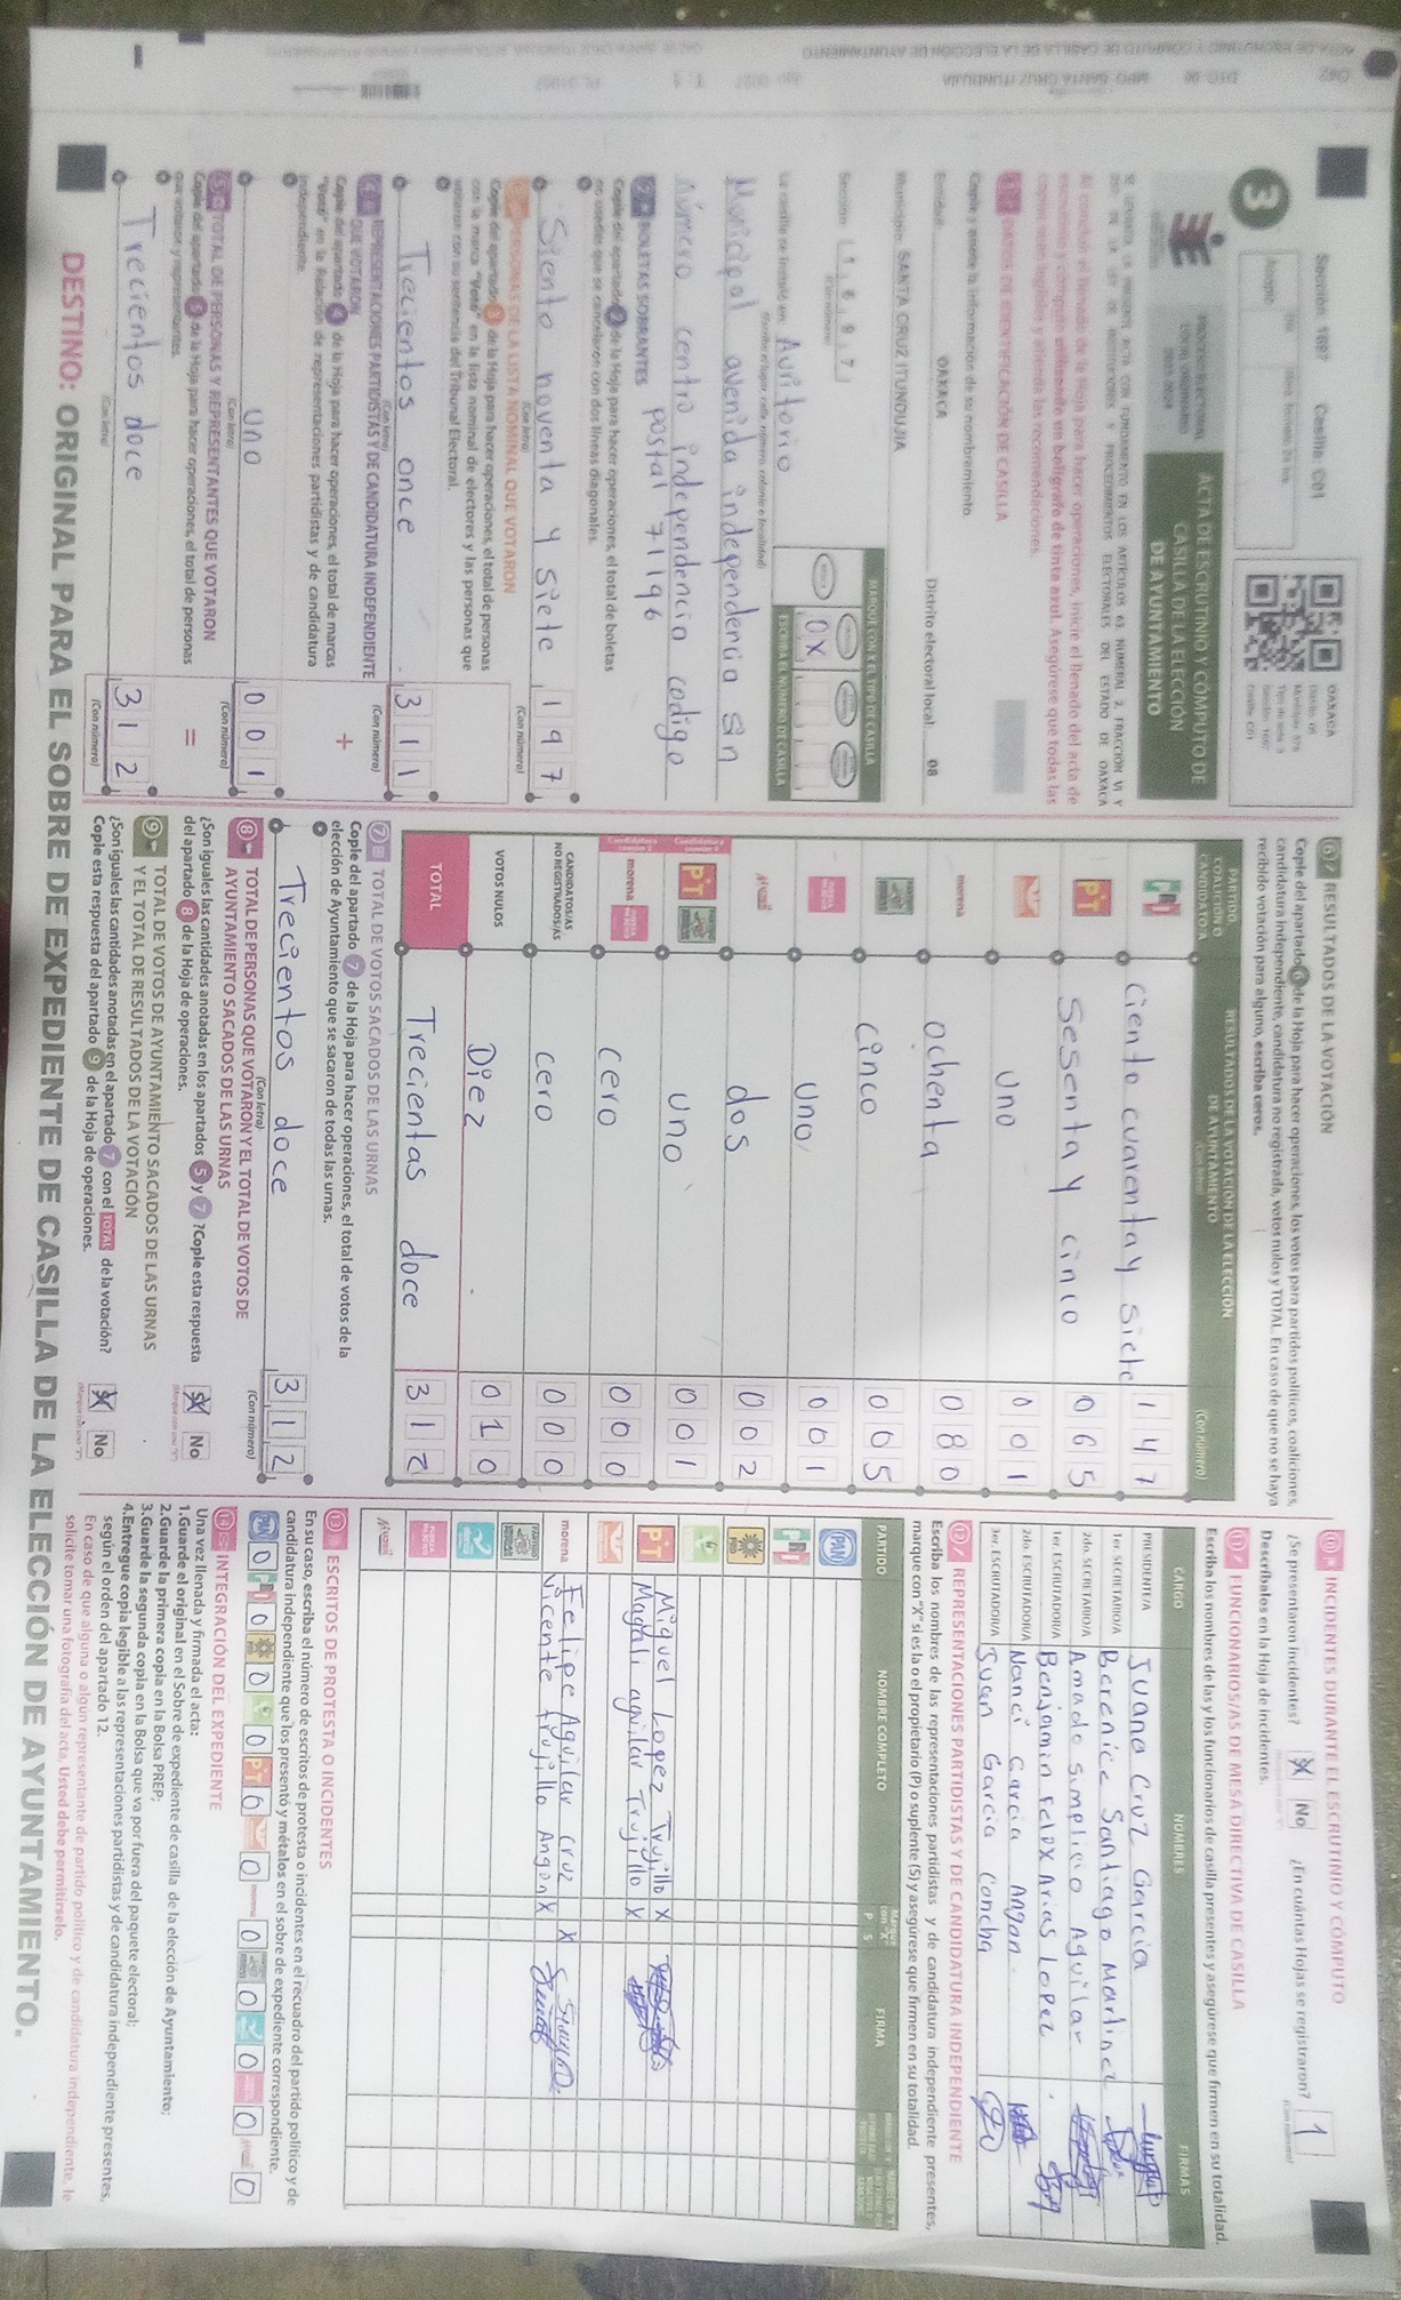 Sección: 1697 Casilla: C01
OAXACA
3
PROCESO ELECTORAL
ACTA DE ESCRUTINIO Y CÓMPUTO DE
CASILLA DE LA ELECCIÓN
DE AYUNTAMIENTO
Al concluir el llenado de la Hoja para hacer operaciones, inicie el llenado del acta de
escrutinio y cómputo utilizando un bolígrafo de tinta azul. Asegúrese que todas las
copias sean legibles y atienda las recomendaciones.
DATOS DE IDENTIFICACIÓN DE CASILLA
Copie y anote la información de su nombramiento
Entidad: OAXACA Distrito electoral local: 08
Municipio: SANTA CRUZ ITUNDUJIA
Sección: 1697
MARQUE CON X EL TIPO DE CASILLA
ESCRIBA EL NÚMERO DE CASILLA
La casilla se instaló en: Auritorio
Municipal avenida independencia sin
número centro independencia codigo
postal 71196
2 BOLETAS SOBRANTES
Copie del apartado 2 de la Hoja para hacer operaciones, el total de boletas
no usadas que se cancelaron con dos líneas diagonales.
Siento noventa y siete 197
(Con letra) (Con número)
PERSONAS DE LA LISTA NOMINAL QUE VOTARON
Copie del apartado 3 de la Hoja para hacer operaciones, el total de personas
con la marca "Votó" en la lista nominal de electores y las personas que
votaron con su sentencia del Tribunal Electoral.
Trecientos once 311
(Con letra) (Con número)
4 REPRESENTACIONES PARTIDISTAS Y DE CANDIDATURA INDEPENDIENTE
QUE VOTARON
Copie del apartado 4 de la Hoja para hacer operaciones, el total de marcas
"Votó" en la Relación de representaciones partidistas y de candidatura
independiente.
+
uno 001
(Con letra) (Con número)
5 TOTAL DE PERSONAS Y REPRESENTANTES QUE VOTARON
Copie del apartado 5 de la Hoja para hacer operaciones, el total de personas
que votaron y representantes.
=
Trecientos doce 312
(Con letra) (Con número)
6 RESULTADOS DE LA VOTACIÓN
Copie del apartado 6 de la Hoja para hacer operaciones, los votos para partidos políticos, coaliciones,
candidatura independiente, candidatura no registrada, votos nulos y TOTAL. En caso de que no se haya
recibido votación para alguno, escriba ceros.
PARTIDO, COALICIÓN O CANDIDATO/A
RESULTADOS DE LA VOTACIÓN DE LA ELECCIÓN DE AYUNTAMIENTO
(Con número)
PRI ciento cuarenta y siete 147
PT Sesenta y cinco 065
uno 001
morena ochenta 080
cinco 005
uno 001
dos 002
PT uno 001
morena cero 000
CANDIDATOS/AS NO REGISTRADOS/AS cero 000
VOTOS NULOS Diez 010
TOTAL Trecientas doce 312
7 TOTAL DE VOTOS SACADOS DE LAS URNAS
Copie del apartado 7 de la Hoja para hacer operaciones, el total de votos de la
elección de Ayuntamiento que se sacaron de todas las urnas.
Trecientos doce 312
(Con letra) (Con número)
8 TOTAL DE PERSONAS QUE VOTARON Y EL TOTAL DE VOTOS DE
AYUNTAMIENTO SACADOS DE LAS URNAS
¿Son iguales las cantidades anotadas en los apartados 5 y 7? Cople esta respuesta
del apartado 8 de la Hoja de operaciones.
Sí X No
9 TOTAL DE VOTOS DE AYUNTAMIENTO SACADOS DE LAS URNAS
Y EL TOTAL DE RESULTADOS DE LA VOTACIÓN
¿Son iguales las cantidades anotadas en el apartado 7 con el TOTAL de la votación?
Cople esta respuesta del apartado 9 de la Hoja de operaciones.
Sí X No
10 INCIDENTES DURANTE EL ESCRUTINIO Y CÓMPUTO
¿Se presentaron incidentes? Sí X No ¿En cuántas Hojas se registraron? 1
Descríbalos en la Hoja de incidentes.
11 FUNCIONARIOS/AS DE MESA DIRECTIVA DE CASILLA
Escriba los nombres de las y los funcionarios de casilla presentes y asegúrese que firmen en su totalidad.
CARGO NOMBRES FIRMAS
PRESIDENTE/A Juana Cruz García
1er. SECRETARIO/A Berenice Santiago Martinez
2do. SECRETARIO/A Amado Simplicio Aguilar
1er. ESCRUTADOR/A Benjamin Felox Arias Lopez
2do. ESCRUTADOR/A Nanci Garcia Angon
3er. ESCRUTADOR/A Juan Garcia Concha
12 REPRESENTACIONES PARTIDISTAS Y DE CANDIDATURA INDEPENDIENTE
Escriba los nombres de las representaciones partidistas y de candidatura independiente presentes,
marque con "X" si es la o el propietario (P) o suplente (S) y asegúrese que firmen en su totalidad.
PARTIDO NOMBRE COMPLETO Marque con "X" P S FIRMA
PAN
PRI
PRD
PT Miguel Lopez Trujillo X
Magali aguilar Trujillo X
morena Felipe Aguilar cruz X
Vicente trujillo Angon X
13 ESCRITOS DE PROTESTA O INCIDENTES
En su caso, escriba el número de escritos de protesta o incidentes en el recuadro del partido político y de
candidatura independiente que los presentó y métalos en el sobre de expediente correspondiente.
PAN 0 PRI 0 PRD 0 0 PT 6 0 morena 0 0 0 0 0
14 INTEGRACIÓN DEL EXPEDIENTE
Una vez llenada y firmada el acta:
1.Guarde el original en el Sobre de expediente de casilla de la elección de Ayuntamiento;
2.Guarde la primera copia en la Bolsa PREP;
3.Guarde la segunda copia en la Bolsa que va por fuera del paquete electoral;
4.Entregue copia legible a las representaciones partidistas y de candidatura independiente presentes,
según el orden del apartado 12.
En caso de que alguna o algún representante de partido político y de candidatura independiente, le
solicite tomar una fotografía del acta, Usted debe permitírselo.
DESTINO: ORIGINAL PARA EL SOBRE DE EXPEDIENTE DE CASILLA DE LA ELECCIÓN DE AYUNTAMIENTO.